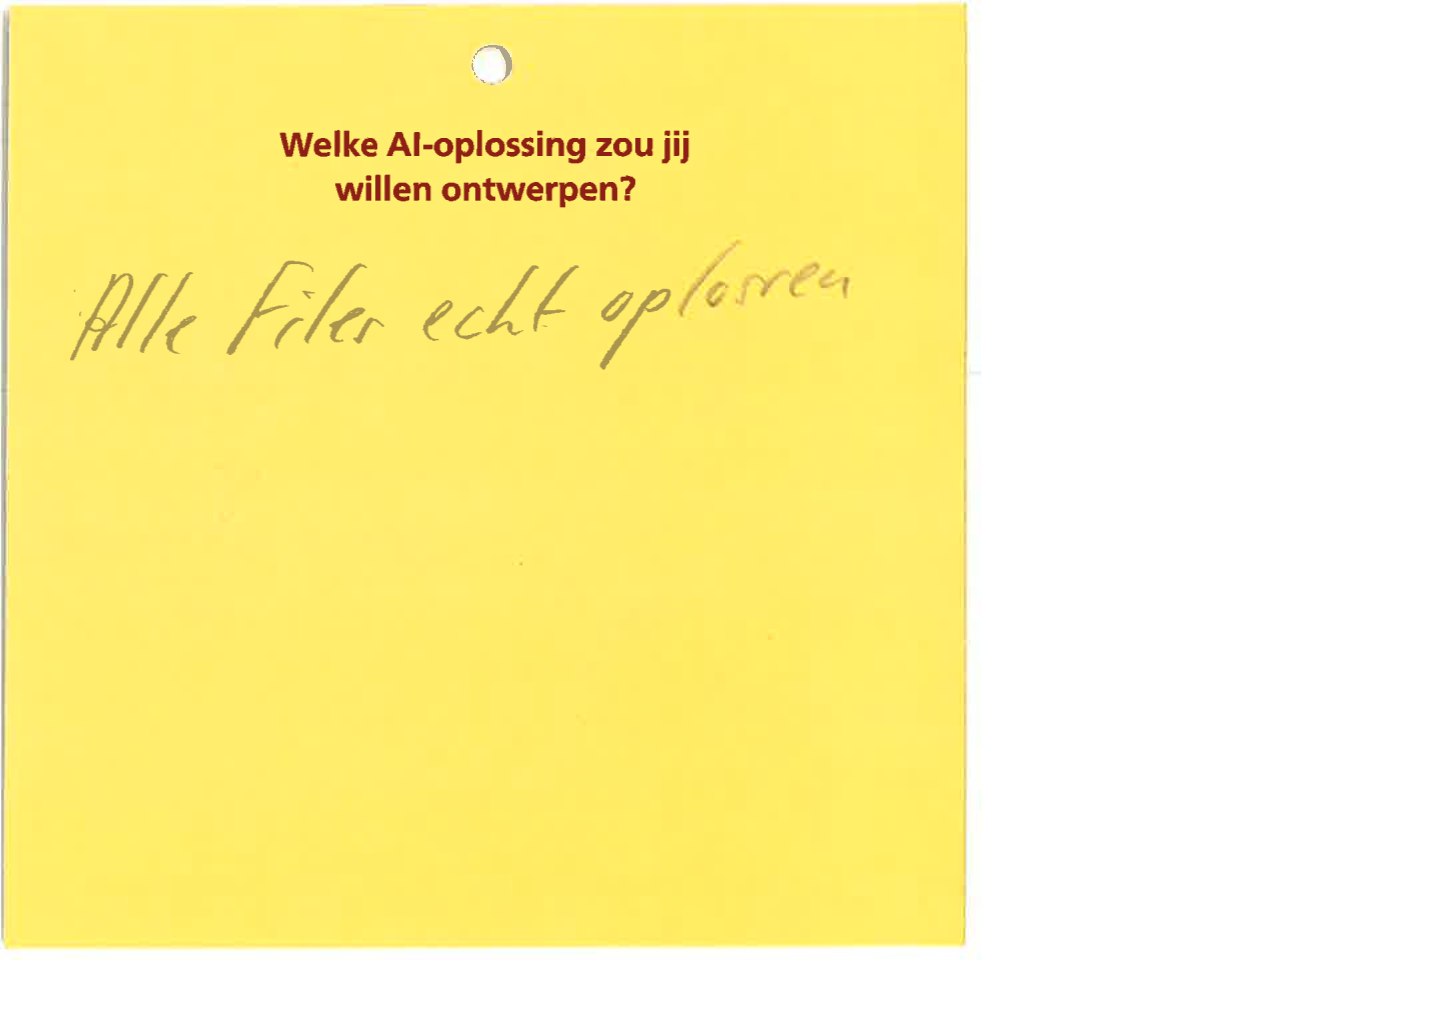 Welke AI-oplossing zou jij
willen ontwerpen?
Alle Files echt oplossen